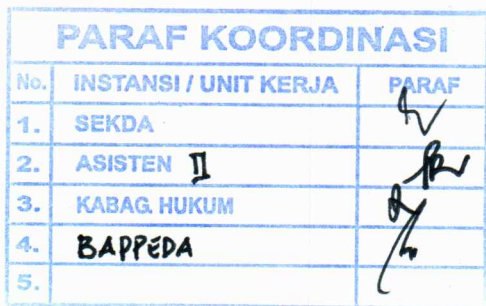 PARAF KOORDINASI
No. INSTANSI / UNIT KERJA PARAF
1. SEKDA
2. ASISTEN II
3. KABAG. HUKUM
4. BAPPEDA
5.